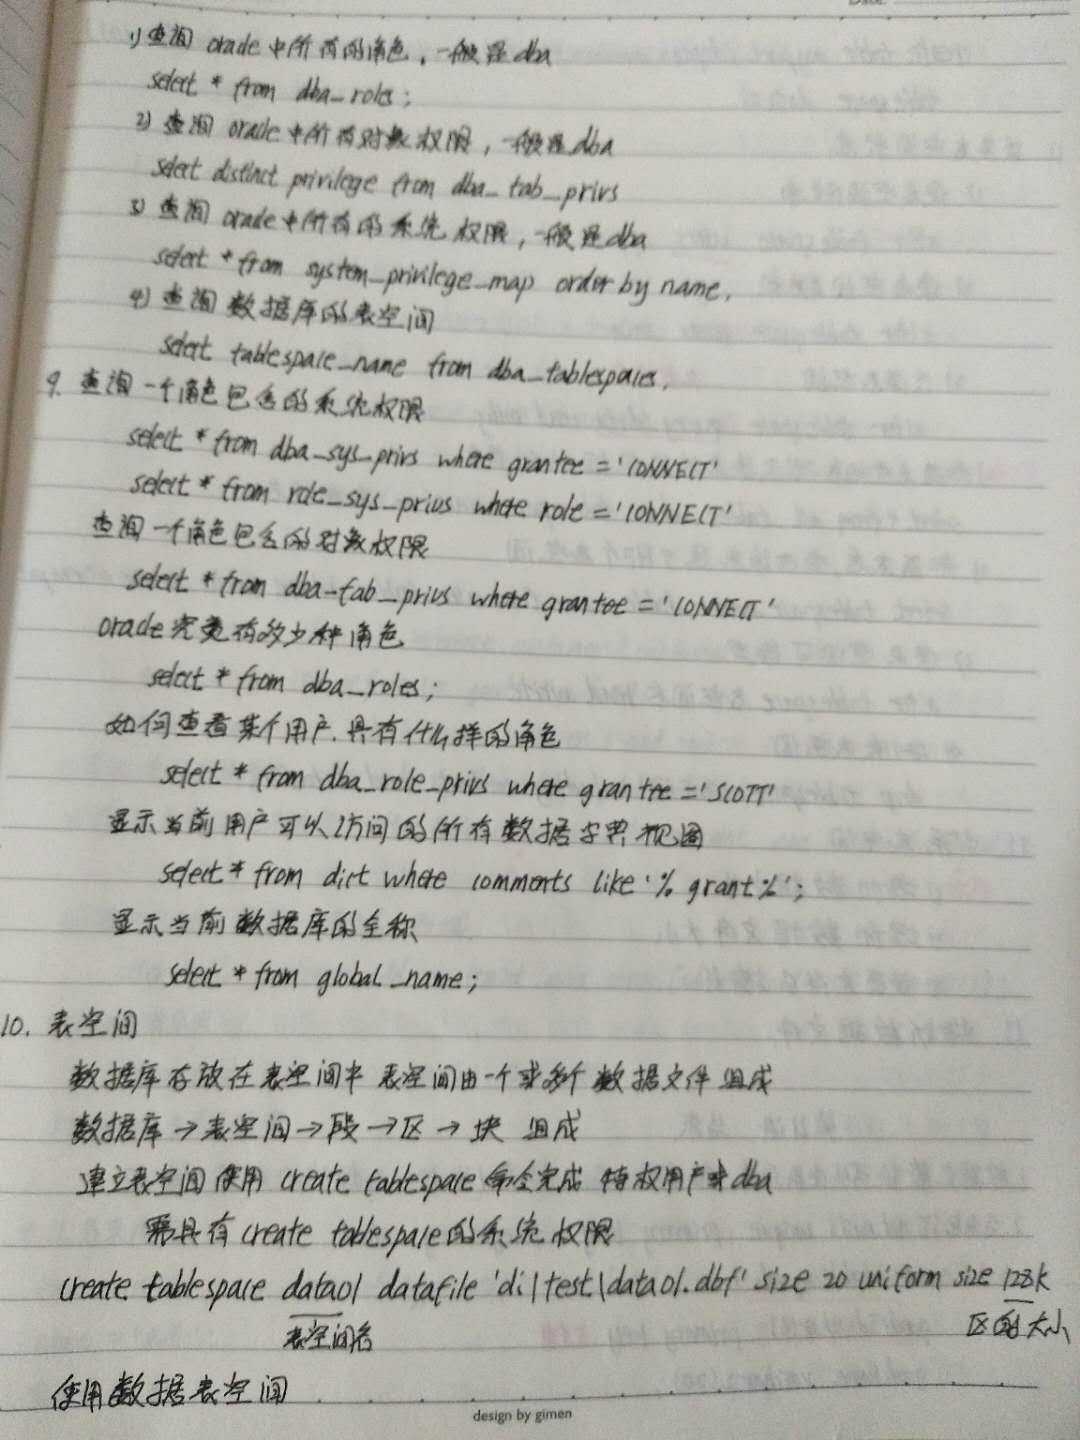 1) 查询 oracle中所有的角色，一般是dba
select * from dba_roles;
2) 查询 oracle中所有对象权限，一般是dba
select distinct privilege from dba_tab_privs
3) 查询 oracle中所有的系统权限，一般是dba
select * from system_privilege_map order by name,
4) 查询数据库的表空间
select tablespace_name from dba_tablespaces,
9. 查询一个角色包含的系统权限
select * from dba_sys_privs where grantee='CONNECT'
select * from role_sys_privs where role='CONNECT'
查询一个角色包含的对象权限
select * from dba-tab_privs where grantee='CONNECT'
oracle究竟有多少种角色
select * from dba_roles;
如何查看某个用户.具有什么样的角色
select * from dba_role_privs where grantee='SCOTT'
显示当前用户可以访问的所有数据字典视图
select * from dict where comments like '%grant%';
显示当前数据库的全称
select * from global_name;
10. 表空间
数据库存放在表空间中 表空间由一个或多个数据文件组成
数据库→表空间→段→区→块 组成
建立表空间使用 create tablespace 命令完成 特权用户或dba
需具有create tablespace的系统权限
create tablespace data01 datafile 'd:\test\data01.dbf' size 20 uniform size 128k
表空间名 区的大小
使用数据表空间
design by gimen